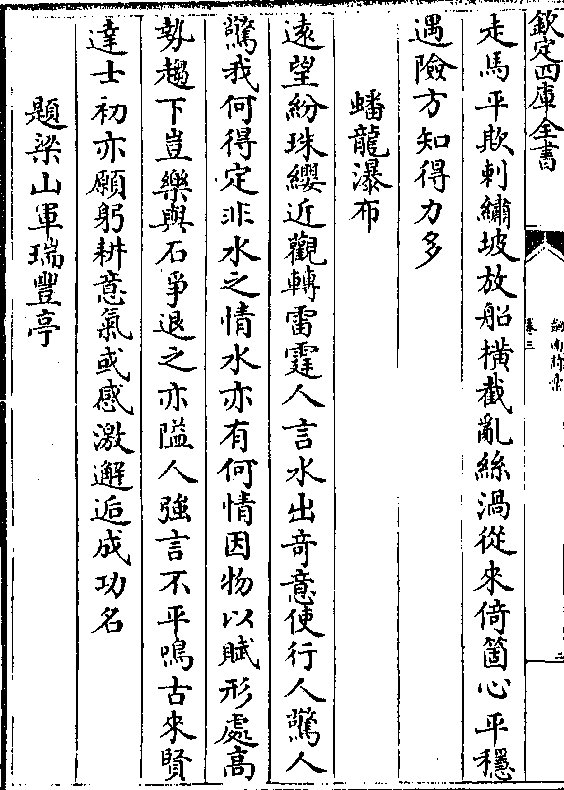 欽定四庫全書
卷三
走馬平欺刺繡坡放船橫截亂絲渦從來倚箇心平穩
遇險方知得力多
蟠龍瀑布
遠望紛珠纓近觀轉雷霆人言水出奇意使行人驚人
驚我何得定非水之情水亦有何情因物以賦形處高
勢趨下豈樂與石爭退之亦隘人強言不平鳴古來賢
達士初亦願躬耕意氣或感激邂逅成功名
題梁山軍瑞豐亭